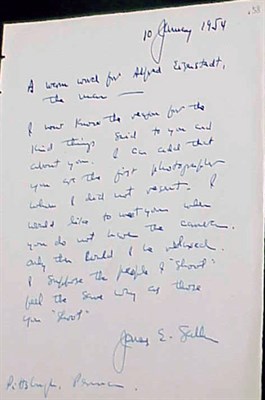 158
10 January 1954
A warm word for Alfred Eisenstadt,
the man —
I now know the reason for the
kind things said to you and
about you. I can add that
you are the first photographer
whom I did not resent. I
would like to meet you when
you do not have the camera.
Only then could I be relaxed.
I suppose the people I "shoot"
feel the same way as those
you "shoot"
Jonas E. Salk
Pittsburgh, Penna.